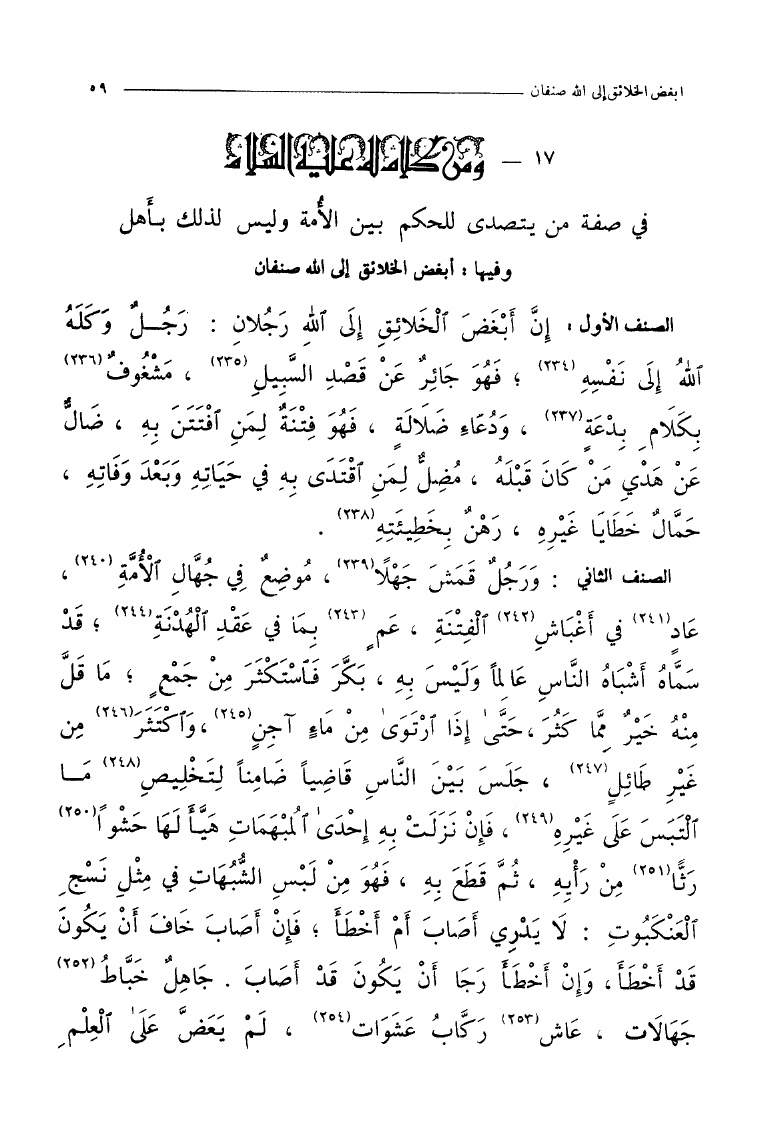 ابغض الخلائق إلى الله صنفان ٥٩
١٧ – ومن كلام له عليه السلام
في صفة من يتصدى للحكم بين الأُمة وليس لذلك بأَهل
وفيها : أبغض الخلائق إلى الله صنفان
الصنف الأول : إِنَّ أَبْغَضَ ٱلْخَلائِقِ إِلَى ٱللهِ رَجُلانِ : رَجُـلٌ وَكَلَهُ
ٱللهُ إِلَى نَفْسِهِ(٢٣٤) ؛ فَهُوَ جَائِرٌ عَنْ قَصْدِ السَّبِيلِ(٢٣٥) ، مَشْغُوفٌ(٢٣٦)
بِكَلَامِ بِدْعَةٍ(٢٣٧) ، وَدُعَاءِ ضَلَالَةٍ ، فَهُوَ فِتْنَةٌ لِمَنِ ٱفْتَتَنَ بِهِ ، ضَالٌّ
عَنْ هَدْيِ مَنْ كَانَ قَبْلَهُ ، مُضِلٌّ لِمَنِ ٱقْتَدَى بِهِ فِي حَيَاتِهِ وَبَعْدَ وَفَاتِهِ ،
حَمَّالٌ خَطَايَا غَيْرِهِ ، رَهْنٌ بِخَطِيئَتِهِ(٢٣٨) .
الصنف الثاني : وَرَجُلٌ قَمَشَ جَهْلًا(٢٣٩) ، مُوضِعٌ فِي جُهَّالِ ٱلْأُمَّةِ(٢٤٠) ،
عَادٍ(٢٤١) فِي أَغْبَاشِ(٢٤٢) ٱلْفِتْنَةِ ، عَمٍ(٢٤٣) بِمَا فِي عَقْدِ ٱلْهُدْنَةِ(٢٤٤) ؛ قَدْ
سَمَّاهُ أَشْبَاهُ النَّاسِ عَالِماً وَلَيْسَ بِهِ ، بَكَّرَ فَٱسْتَكْثَرَ مِنْ جَمْعٍ ؛ مَا قَلَّ
مِنْهُ خَيْرٌ مِمَّا كَثُرَ ، حَتَّىٰ إِذَا ٱرْتَوَىٰ مِنْ مَاءٍ آجِنٍ(٢٤٥) ، وَٱكْتَثَرَ(٢٤٦) مِن
غَيْرِ طَائِلٍ(٢٤٧) ، جَلَسَ بَيْنَ النَّاسِ قَاضِياً ضَامِناً لِتَخْلِيصِ(٢٤٨) مَـا
ٱلْتَبَسَ عَلَى غَيْرِهِ(٢٤٩) ، فَإِنْ نَزَلَتْ بِهِ إِحْدَىٰ ٱلْمُبْهَمَاتِ هَيَّأَ لَهَا حَشْواً(٢٥٠)
رَثًّا(٢٥١) مِنْ رَأْيِهِ ، ثُمَّ قَطَعَ بِهِ ، فَهُوَ مِنْ لَبْسِ الشُّبُهَاتِ فِي مِثْلِ نَسْجِ
ٱلْعَنْكَبُوتِ : لَا يَدْرِي أَصَابَ أَمْ أَخْطَأَ ؛ فَإِنْ أَصَابَ خَافَ أَنْ يَكُونَ
قَدْ أَخْطَأَ ، وَإِنْ أَخْطَأَ رَجَا أَنْ يَكُونَ قَدْ أَصَابَ . جَاهِلٌ خَبَّاطُ(٢٥٢)
جَهَالَات ، عَاش(٢٥٣) رَكَّابُ عَشَوَات(٢٥٤) ، لَمْ يَعَضَّ عَلَىٰ ٱلْعِلْمِ